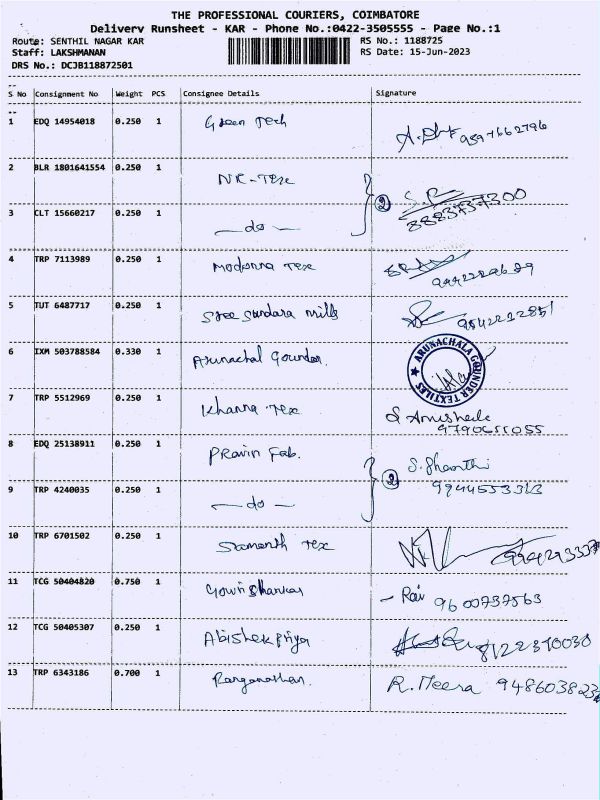 THE PROFESSIONAL COURIERS, COIMBATORE
Delivery Runsheet - KAR - Phone No.:0422-3505555 - Page No.:1
Route: SENTHIL NAGAR KAR RS No.: 1188725
Staff: LAKSHMANAN RS Date: 15-Jun-2023
DRS No.: DCJB118872501
S No Consignment No Weight PCS Consignee Details Signature
1 EDQ 14954018 0.250 1 Green Tech
2 BLR 1801641554 0.250 1 NK-Tex 2 8883737300
3 CLT 15660217 0.250 1 — do —
4 TRP 7113989 0.250 1 Madonna Tex
5 TUT 6487717 0.250 1 Sree Sundara mills 9842212851
6 IXM 503788584 0.330 1 Arunachal Gounder. ARUNACHALA GOUNDER TEXTILES
7 TRP 5512969 0.250 1 Khanna Tex 9790611055
8 EDQ 25138911 0.250 1 Pravin Fab. 2 S. Shanthi
9 TRP 4240035 0.250 1 — do — 9944553313
10 TRP 6701502 0.250 1 Tex
11 TCG 50404820 0.750 1 Gowri Shankar - Ravi 9600737563
12 TCG 50405307 0.250 1 Abishek priya 8122310030
13 TRP 6343186 0.700 1 Ranganathan. R. Meera 948603823